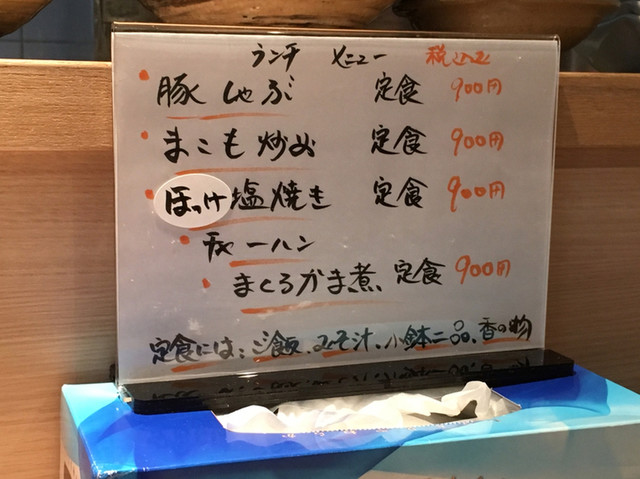 ランチ メニュー 税込み
・豚しゃぶ 定食 900円
・まこも炒め 定食 900円
・ほっけ塩焼き 定食 900円
・チャーハン
・まぐろかま煮 定食 900円
定食には、ご飯、みそ汁、小鉢二品、香の物